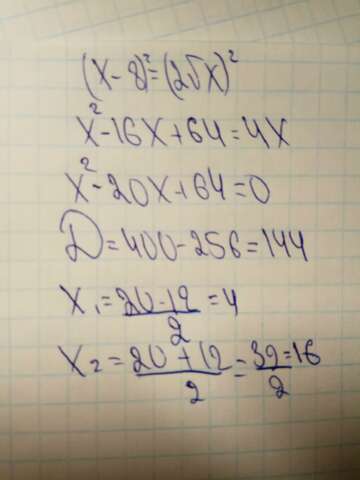 (x-8)²=(2√x)²
x²-16x+64=4x
x²-20x+64=0
D=400-256=144
x₁=(20-12)/2=4
x₂=(20+12)/2=32/2=16